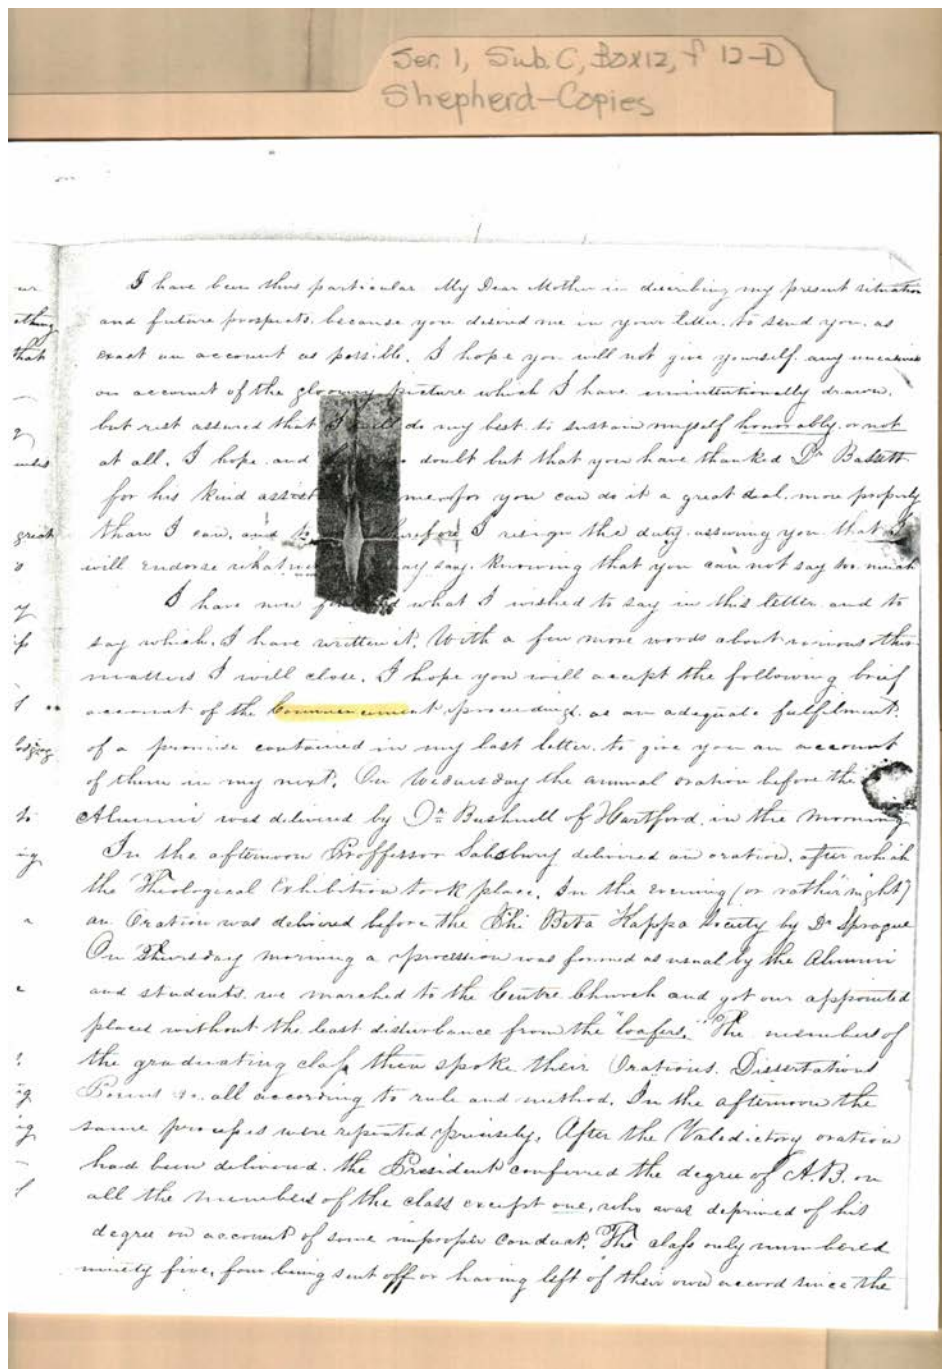 Ser. 1, Sub. C, Box 12, f 12-D
Shepherd-Copies
I have been thus particular My Dear Mother in describing my present situation
and future prospects, because you desired me in your letter, to send you, as
exact an account as possible. I hope you will not give yourself any
on account of the gloomy picture which I have unintentionally drawn,
but rest assured that I will do my best to sustain myself honorably or not
at all. I hope and doubt but that you have thanked Dr Bassett
for his kind assist me, for you can do it a great deal more properly
than I can, and I resign the duty, assuring you that I
will endorse what ay say, knowing that you can not say too much
I have now what I wished to say in this letter and to
say which, I have written it. With a few more words about various other
matters I will close. I hope you will accept the following brief
account of the Commencement proceedings as an adequate fulfilment
of a promise contained in my last letter, to give you an account
of them in my next. On Wednesday the annual oration before the
Alumni was delivered by Dr Bushnell of Hartford, in the morning
In the afternoon Proffessor Salisbury delivered an oration, after which
the Theological Exhibition took place. In the evening (or rather night)
an Oration was delivered before the Phi Beta Kappa Society by Dr Sprague
On Thursday morning a procession was formed as usual by the Alumni
and students. we marched to the Centre Church and got our appointed
places without the least disturbance from the "loafers." The members of
the graduating class then spoke their Orations. Dissertations
Poems &c. all according to rule and method. In the afternoon the
same processes were repeated precisely. After the Valedictory oration
had been delivered. the President conferred the degree of A.B. on
all the members of the class except one, who was deprived of his
degree on account of some improper conduct. The class only numbered
ninety five, four being sent off or having left of their own accord since the